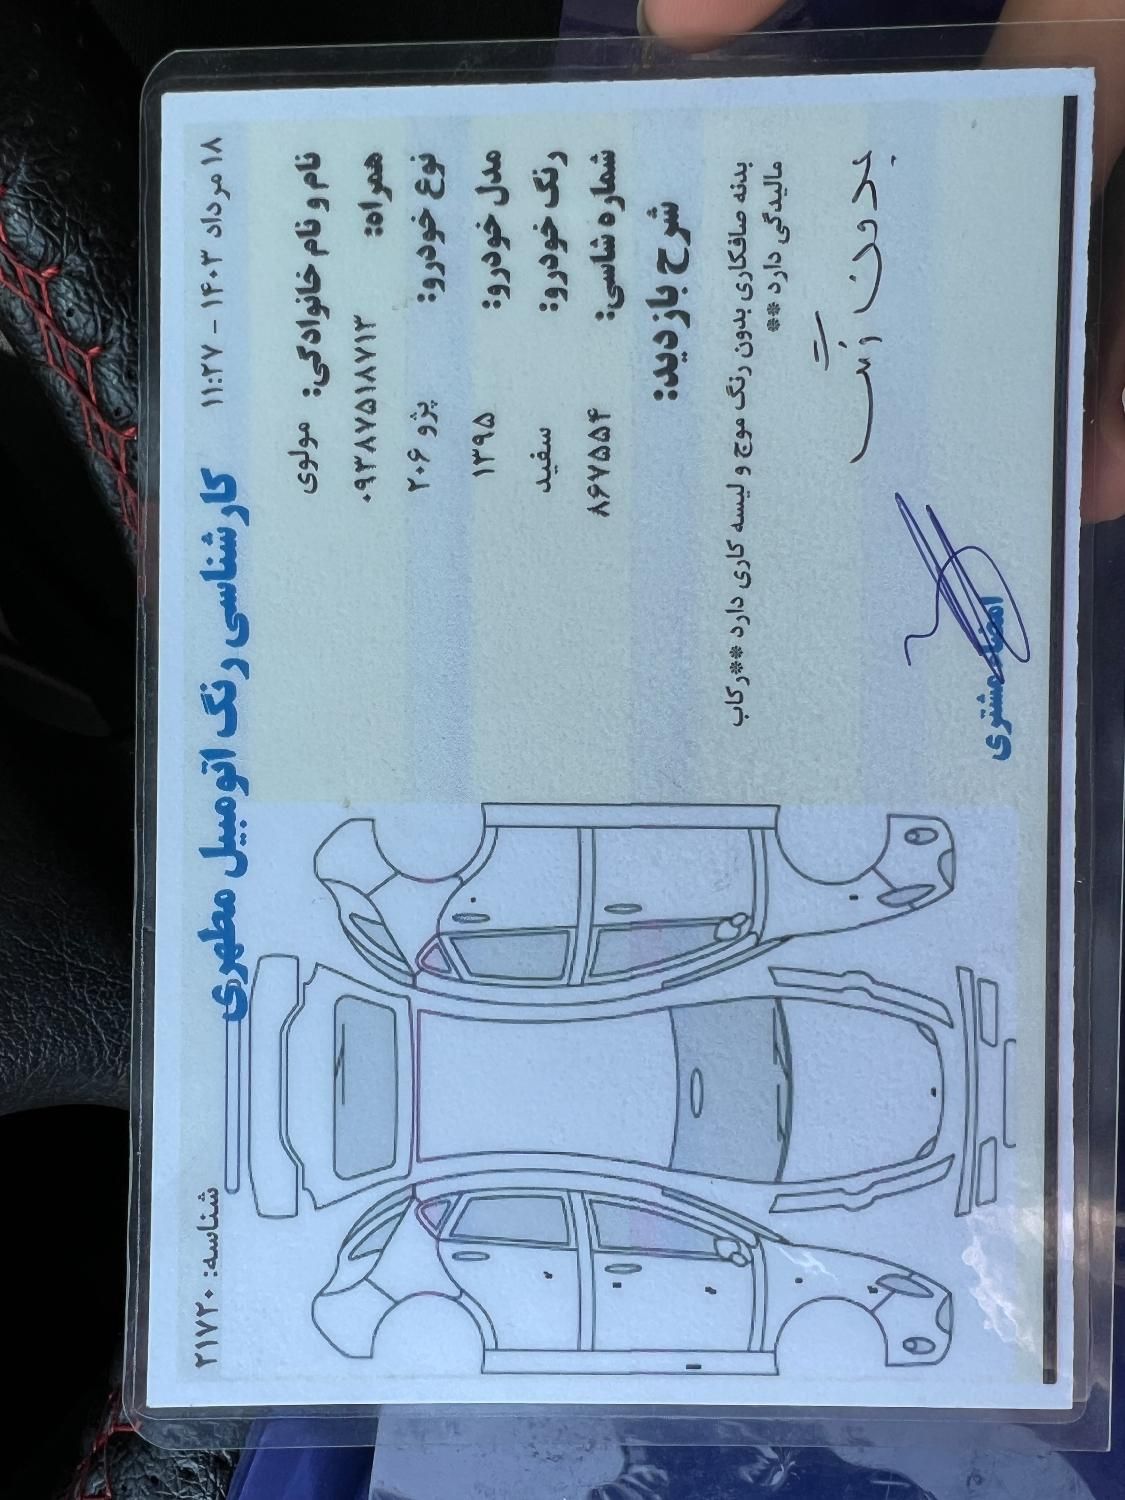 ۱۸ مرداد ۱۴۰۳ - ۱۱:۲۷
کارشناسی رنگ اتومبیل مطهری
شناسه: ۲۱۷۲۰
نام و نام خانوادگی: مولوی
همراه: ۰۹۳۸۷۵۱۸۷۱۳
نوع خودرو: پژو ۲۰۶
مدل خودرو: ۱۳۹۵
رنگ خودرو: سفید
شماره شاسی: ۸۶۷۵۵۴
شرح بازدید:
بدنه صافکاری بدون رنگ موج و لیسه کاری دارد **رکاب
مالیدگی دارد **
بدون رنگ
امضاء مشتری